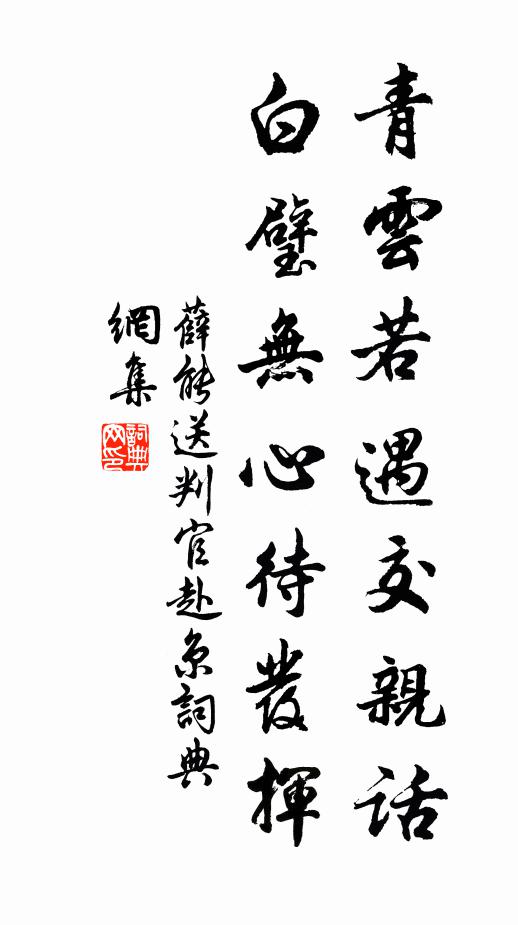 青雲若遇交親話
白璧無心待發揮
薛能送判官赴京詞典
網集
詞典網印